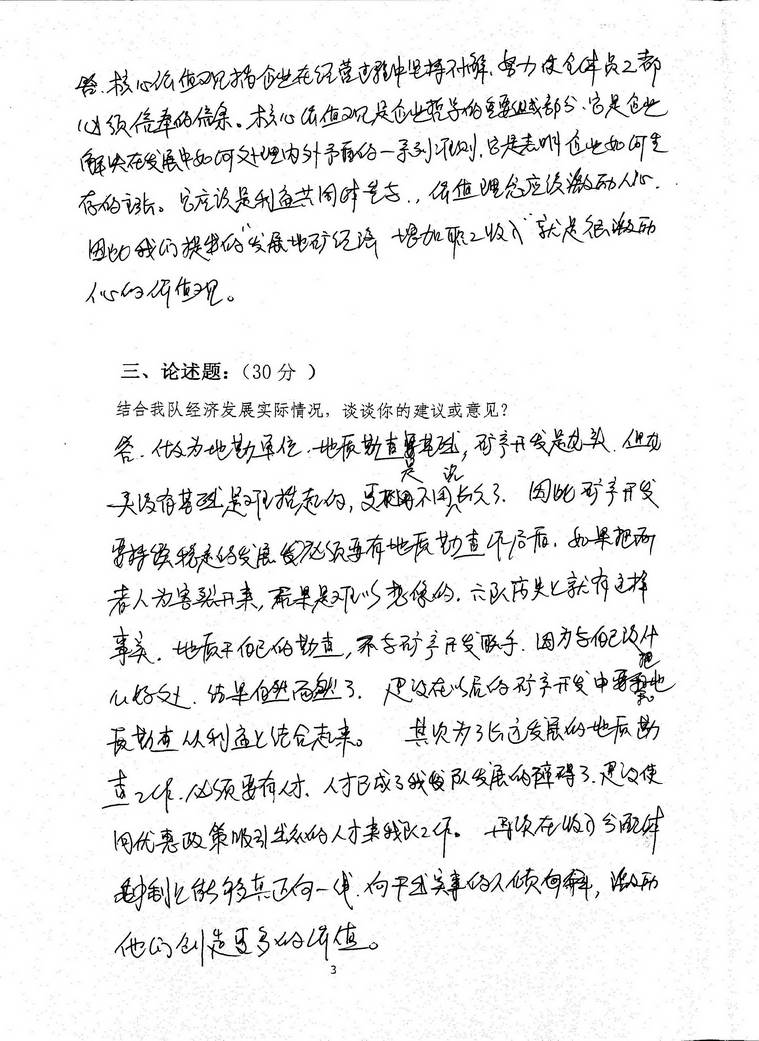 答.核心价值观指企业在经营过程中坚持不懈,努力使全体员工都
必须信奉的信条。核心价值观是企业哲学的重要组成部分,它是企业
解决在发展中如何处理内外矛盾的一系列准则,它是表明企业如何生
存的主张。它应该是利益共同体,价值理念应该激励人心.
因此我们提出的"发展地矿经济 增加职工收入"就是很激励
人心的价值观。
三、论述题:(30分 )
结合我队经济发展实际情况,谈谈你的建议或意见?
答.做为地勘单位.地质勘查是基础,矿产开发是龙头.但龙
头没有基础是难抬起的,更不用说了. 因此矿产开发
要持续稳定的发展必须要有地质勘查作后盾.如果把两
者人为割裂开来,后果是难以想像的.六队历史上就有这样
事实.地质干自己的勘查,不与矿产开发联手.因为与自己没什
么好处.结果自然而然了. 建议在以后的矿产开发中要把地
质勘查从利益上结合起来。 其次为了长远发展的地质勘
查工作.必须要有人才.人才已成了我队发展的障碍了.建议使
用优惠政策吸引出众的人才来我队工作。 再次在收入分配体
制上能够真正向一线.向干实事的人倾向,激励
他们创造更多的价值。
3